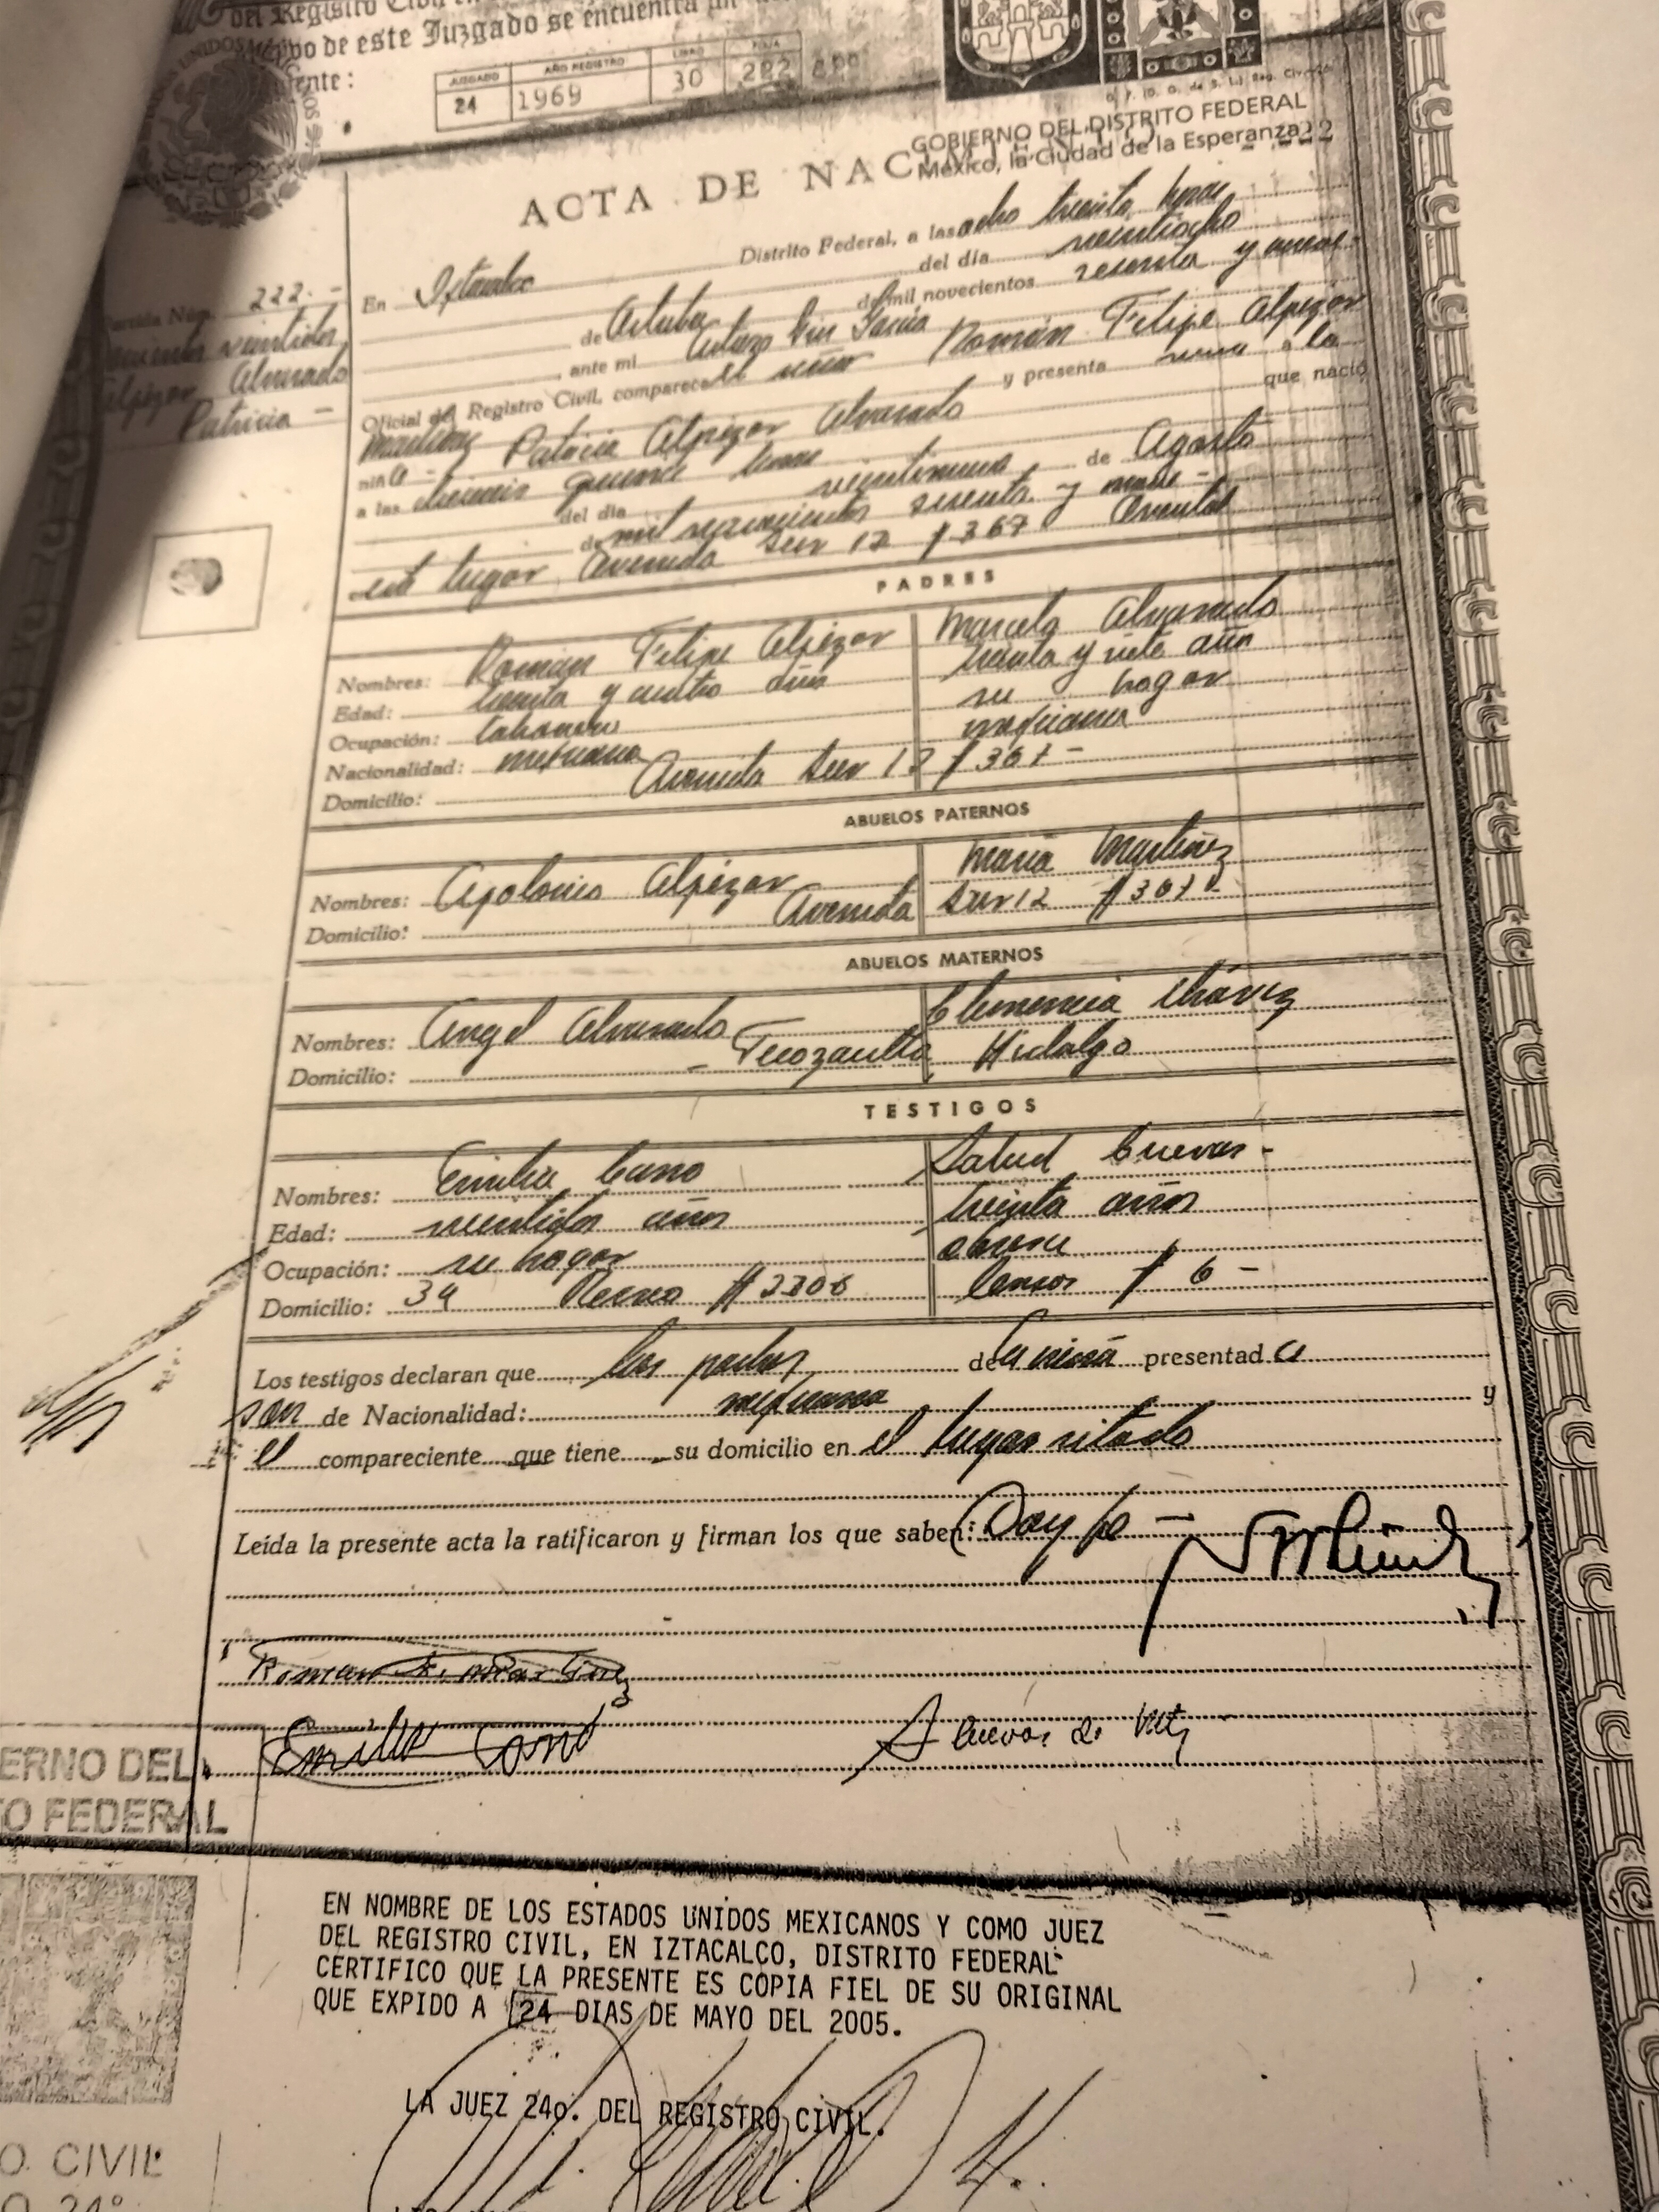 del Registro Civil en
de este Juzgado se encuentra un
JUZGADO AÑO REGISTRO LIBRO FOJA
24 1969 30 222
GOBIERNO DEL DISTRITO FEDERAL
México, la Ciudad de la Esperanza
ACTA DE NACIMIENTO
Partida Núm. 222.-
veintidos
Alpizar Alvarado
Patricia -
En Distrito Federal, a las ocho treinta horas
del día veintiocho
de Octubre de mil novecientos sesenta y nueve-
ante mi García
Oficial del Registro Civil, comparece el señor Román Felipe Alpizar
Martínez y presenta viva a la
niña - Patricia Alpizar Alvarado que nació
a las quince horas
del día veintinueve de Agosto
de mil novecientos sesenta y nueve -
en lugar Avenida Sur 12 # 367 Oriental
PADRES
Nombres: Román Felipe Alpizar Marcela Alvarado
Edad: treinta y cuatro años treinta y siete años
Ocupación: su hogar
Nacionalidad: mexicana mexicana
Domicilio: Avenida Sur 12 # 367 -
ABUELOS PATERNOS
Nombres: Apolonio Alpizar María Martínez
Domicilio: Avenida Sur 12 # 367 -
ABUELOS MATERNOS
Nombres: Angel Alvarado Clemencia Chávez
Domicilio: - Tecozautla Hidalgo
TESTIGOS
Nombres: Emilia Cano Salud Cuevas -
Edad: veintidos años treinta años
Ocupación: su hogar obrera
Domicilio: 34 # 2306 # 6 -
Los testigos declaran que los padres de la niña presentada
son de Nacionalidad: mexicana y
el compareciente que tiene su domicilio en el lugar citado
Leída la presente acta la ratificaron y firman los que saben: Doy fe -
Roman F. Martinez
Emilia Cano
S Cuevas de
GOBIERNO DEL
DISTRITO FEDERAL
EN NOMBRE DE LOS ESTADOS UNIDOS MEXICANOS Y COMO JUEZ
DEL REGISTRO CIVIL, EN IZTACALCO, DISTRITO FEDERAL
CERTIFICO QUE LA PRESENTE ES COPIA FIEL DE SU ORIGINAL
QUE EXPIDO A 24 DIAS DE MAYO DEL 2005.
LA JUEZ 24o. DEL REGISTRO CIVIL.
O. CIVIL
O 24°